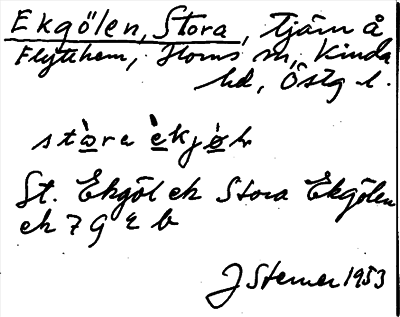 Ekgölen, Stora, tjärn å
Flytthem, Horns sn, Kinda
hd, Östg l.
stòra èkjøl
St. Ekgöl ek Stora Ekgölen
ek 7 G e b
J Sterner 1953